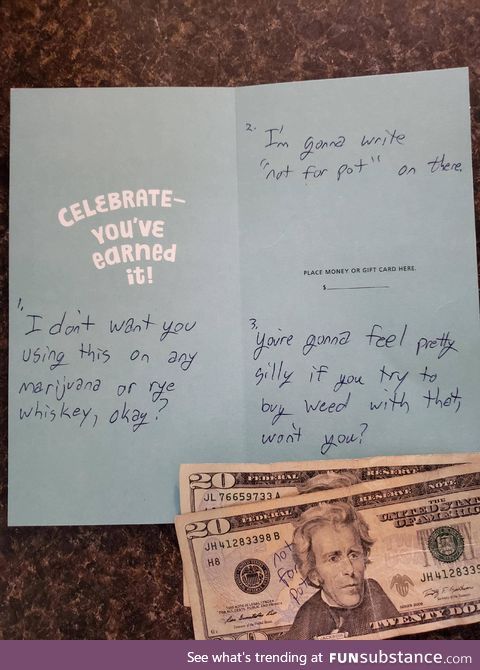 CELEBRATE-
YOU'VE
earned
it!
1.
I don't want you
using this on any
marijuana or rye
whiskey, okay?
2.
I'm gonna write
"not for pot" on there.
PLACE MONEY OR GIFT CARD HERE.
$
3.
you're gonna feel pretty
silly if you try to
buy weed with that,
won't you?
20 FEDERAL RESERVE
JL 76659733 A
20 FEDERAL RESERVE NOTE
THE UNITED STATES
OF AMERICA
JH 41283398 B
H8
not
For
pot
JH 4128339
TWENTY DO
See what's trending at FUNsubstance.com